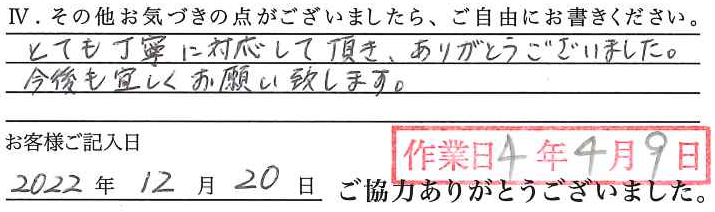 Ⅳ．その他お気づきの点がございましたら、ご自由にお書きください。
とても丁寧に対応して頂き、ありがとうございました。
今後も宜しくお願い致します。
お客様ご記入日
作業日4年4月9日
2022年12月20日
ご協力ありがとうございました。